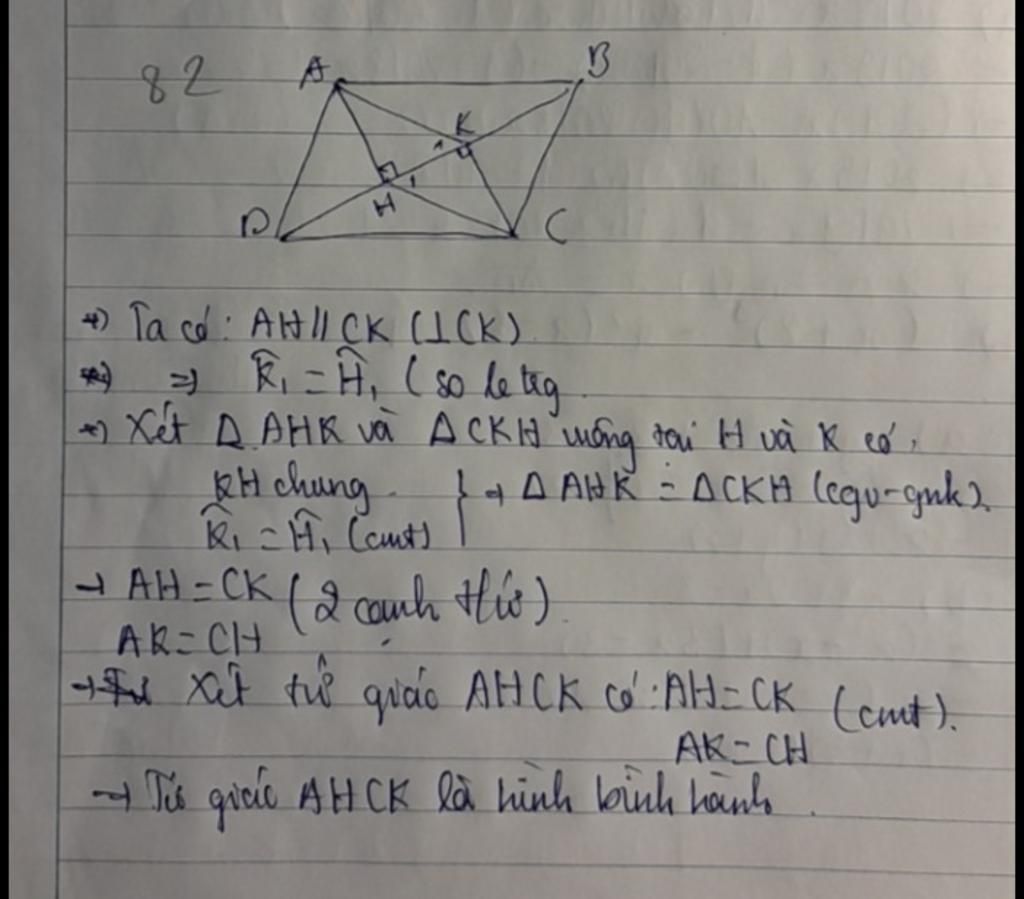 82
A
B
K
1
H
1
D
C
+) Ta có: AH // CK (⊥CK)
=) K̂₁ = Ĥ₁ (so le trg
→ Xét Δ AHK và Δ CKH vuông tại H và K có,
KH chung.
K̂₁ = Ĥ₁ (cmt)
→ Δ AHK = Δ CKH (cgv-gnk).
→ AH = CK (2 cạnh t/ứ).
AK = CH
→ Xét tứ giác AHCK có: AH = CK (cmt).
AK = CH
→ Tứ giác AHCK là hình bình hành.